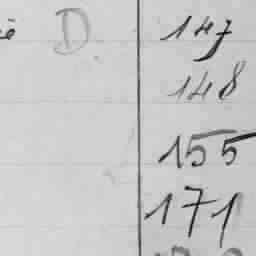 D. 147
148
155
171